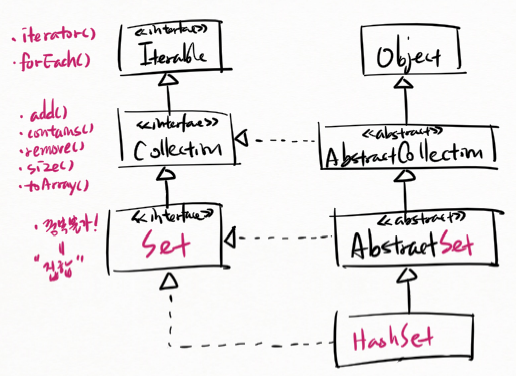 · iterator()
· forEach()
<<interface>>
Iterable
Object
· add()
· contains()
· remove()
· size()
· toArray()
<<interface>>
Collection
<<abstract>>
AbstractCollection
· 중복불가!
"집합"
<<interface>>
Set
<<abstract>>
AbstractSet
HashSet